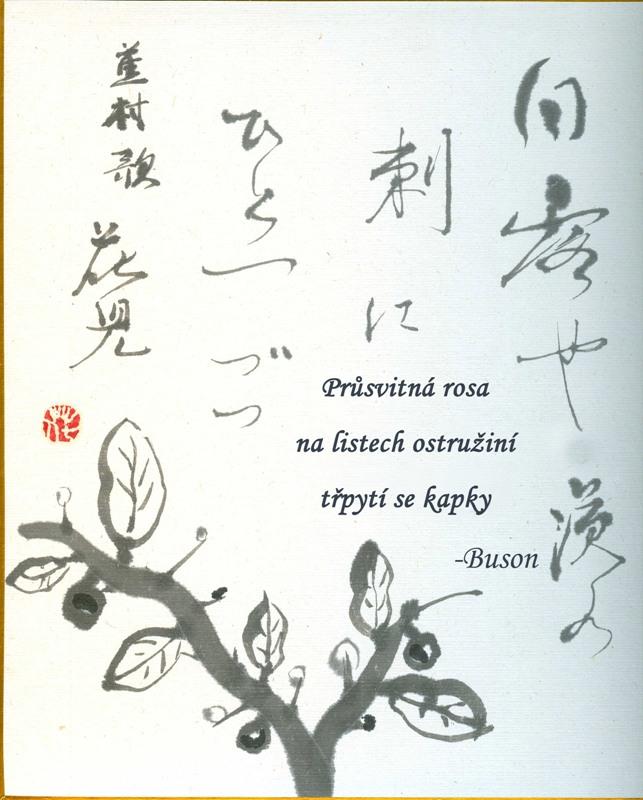 白露や茨の
刺に
ひとつづつ
蕪村歌
Průsvitná rosa
na listech ostružiní
třpytí se kapky
-Buson